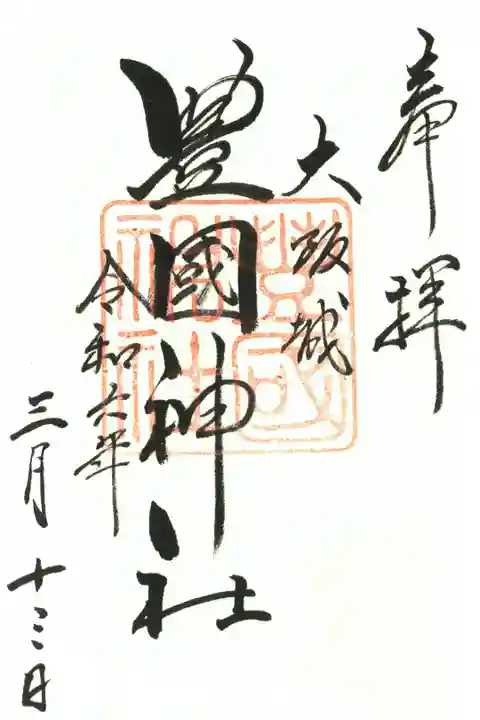 奉拝
大坂城
豊國神社
令和六年
三月十三日
豊國神社